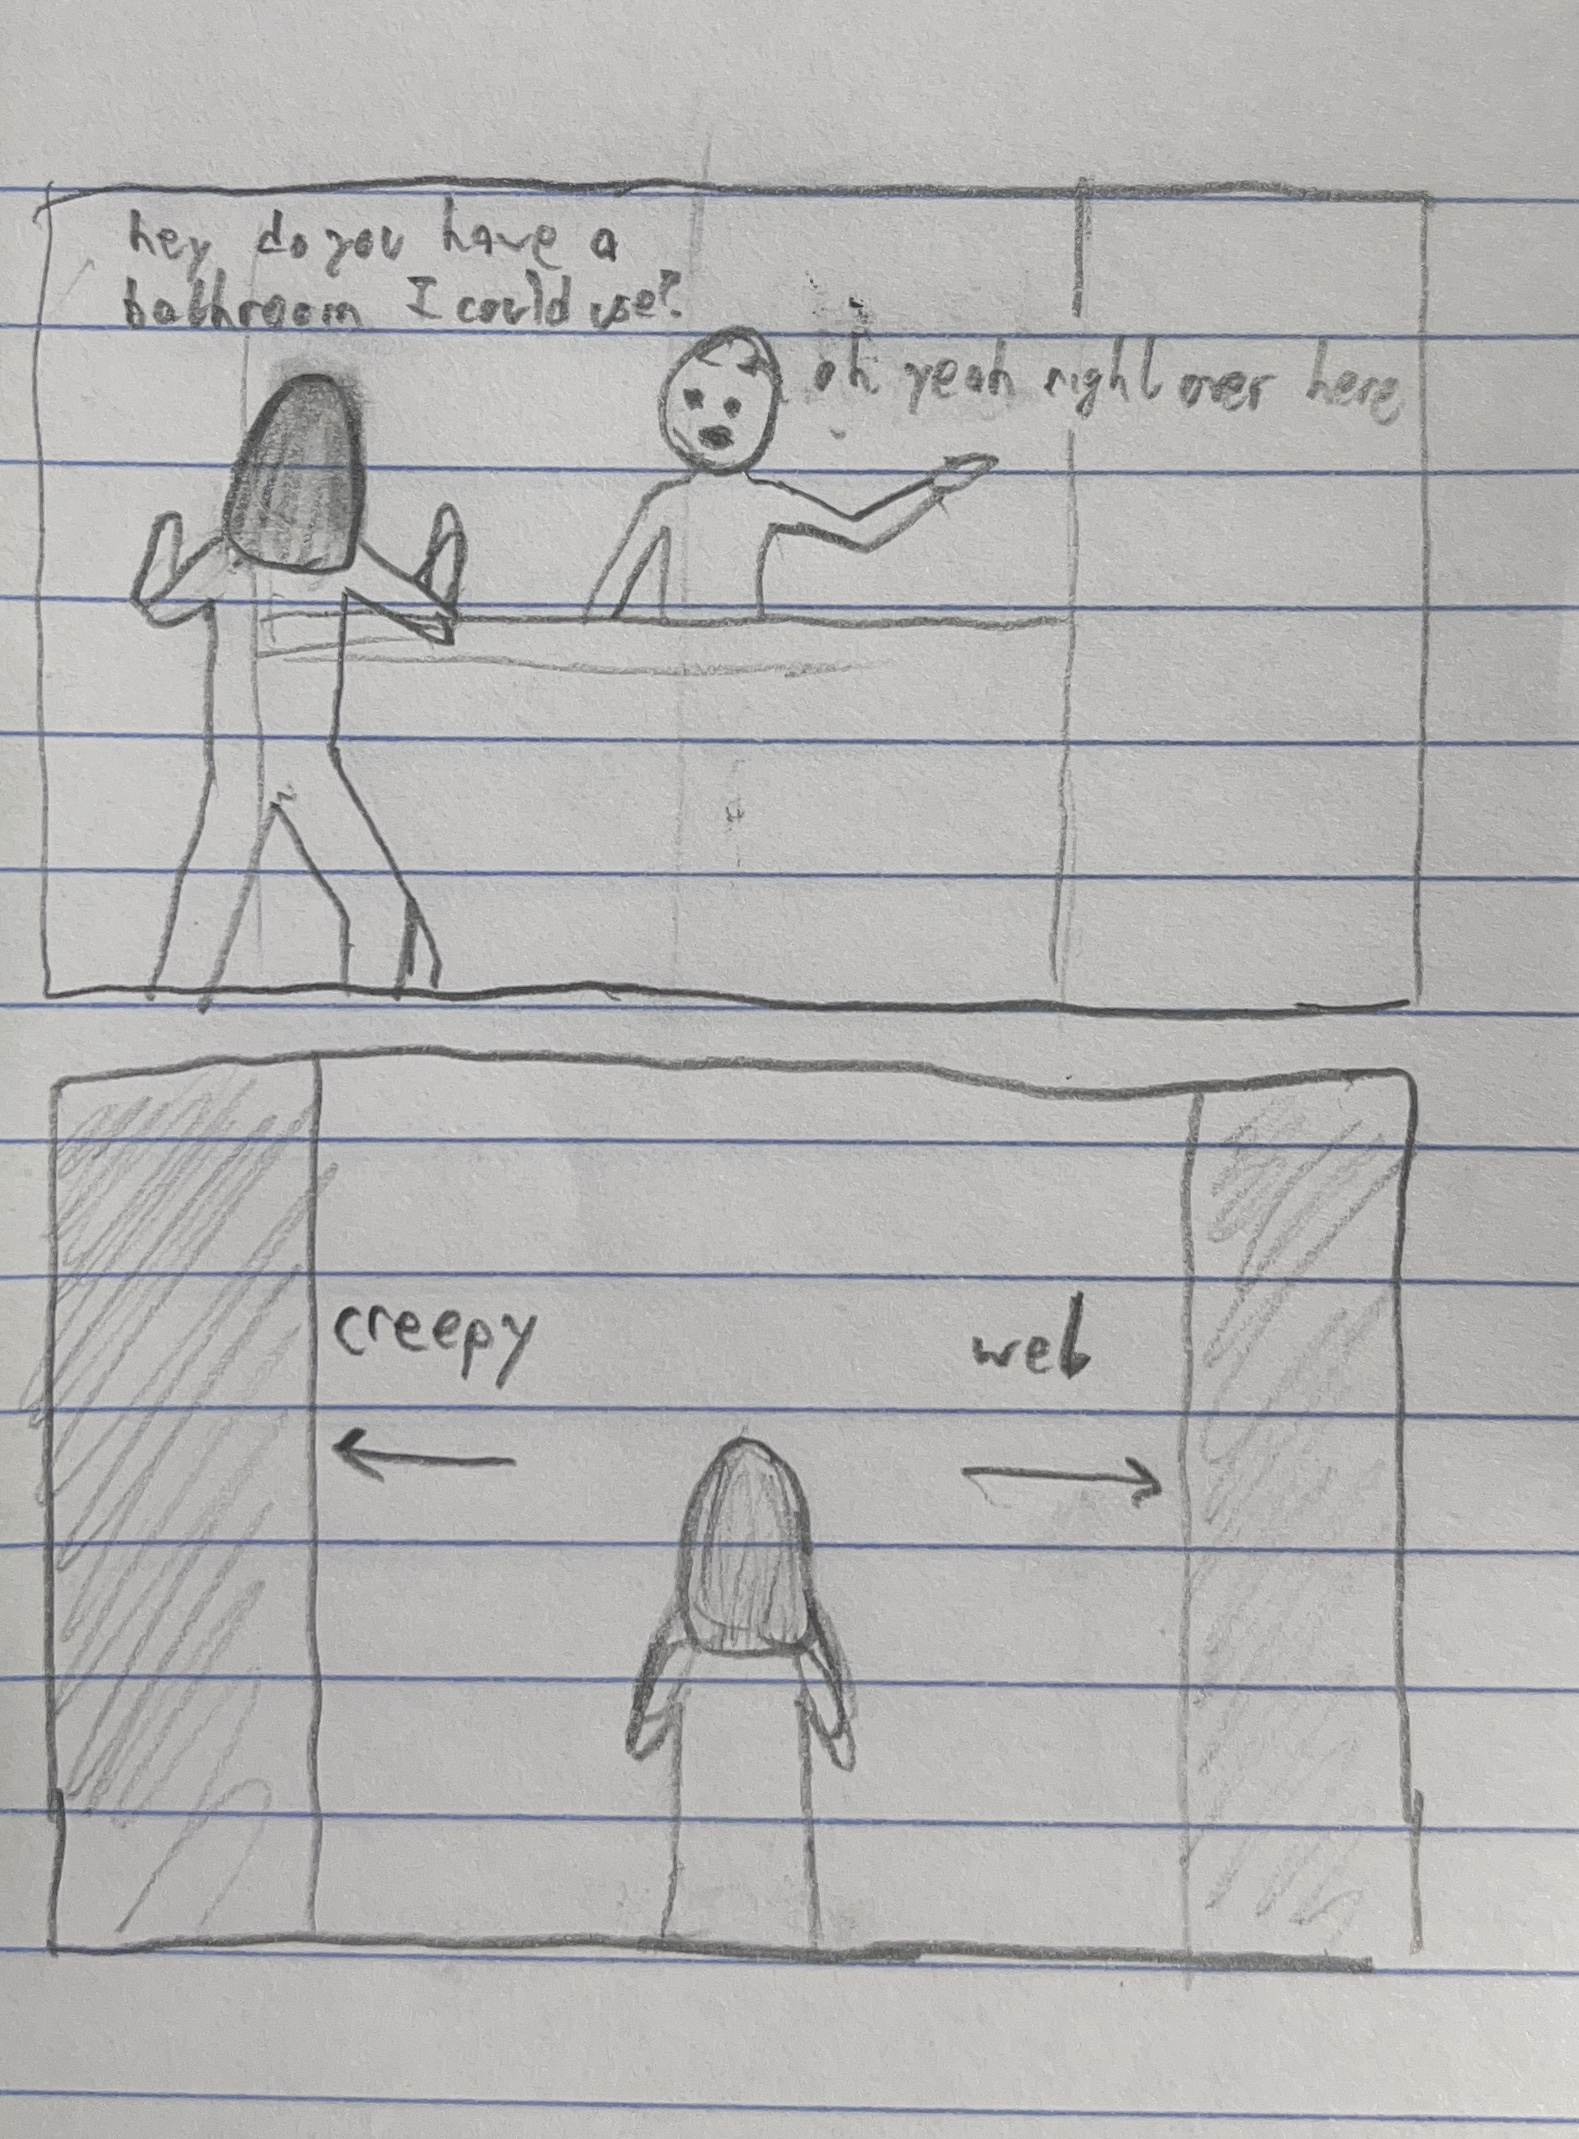 hey do you have a
bathroom I could use?
oh yeah right over here
creepy
wet